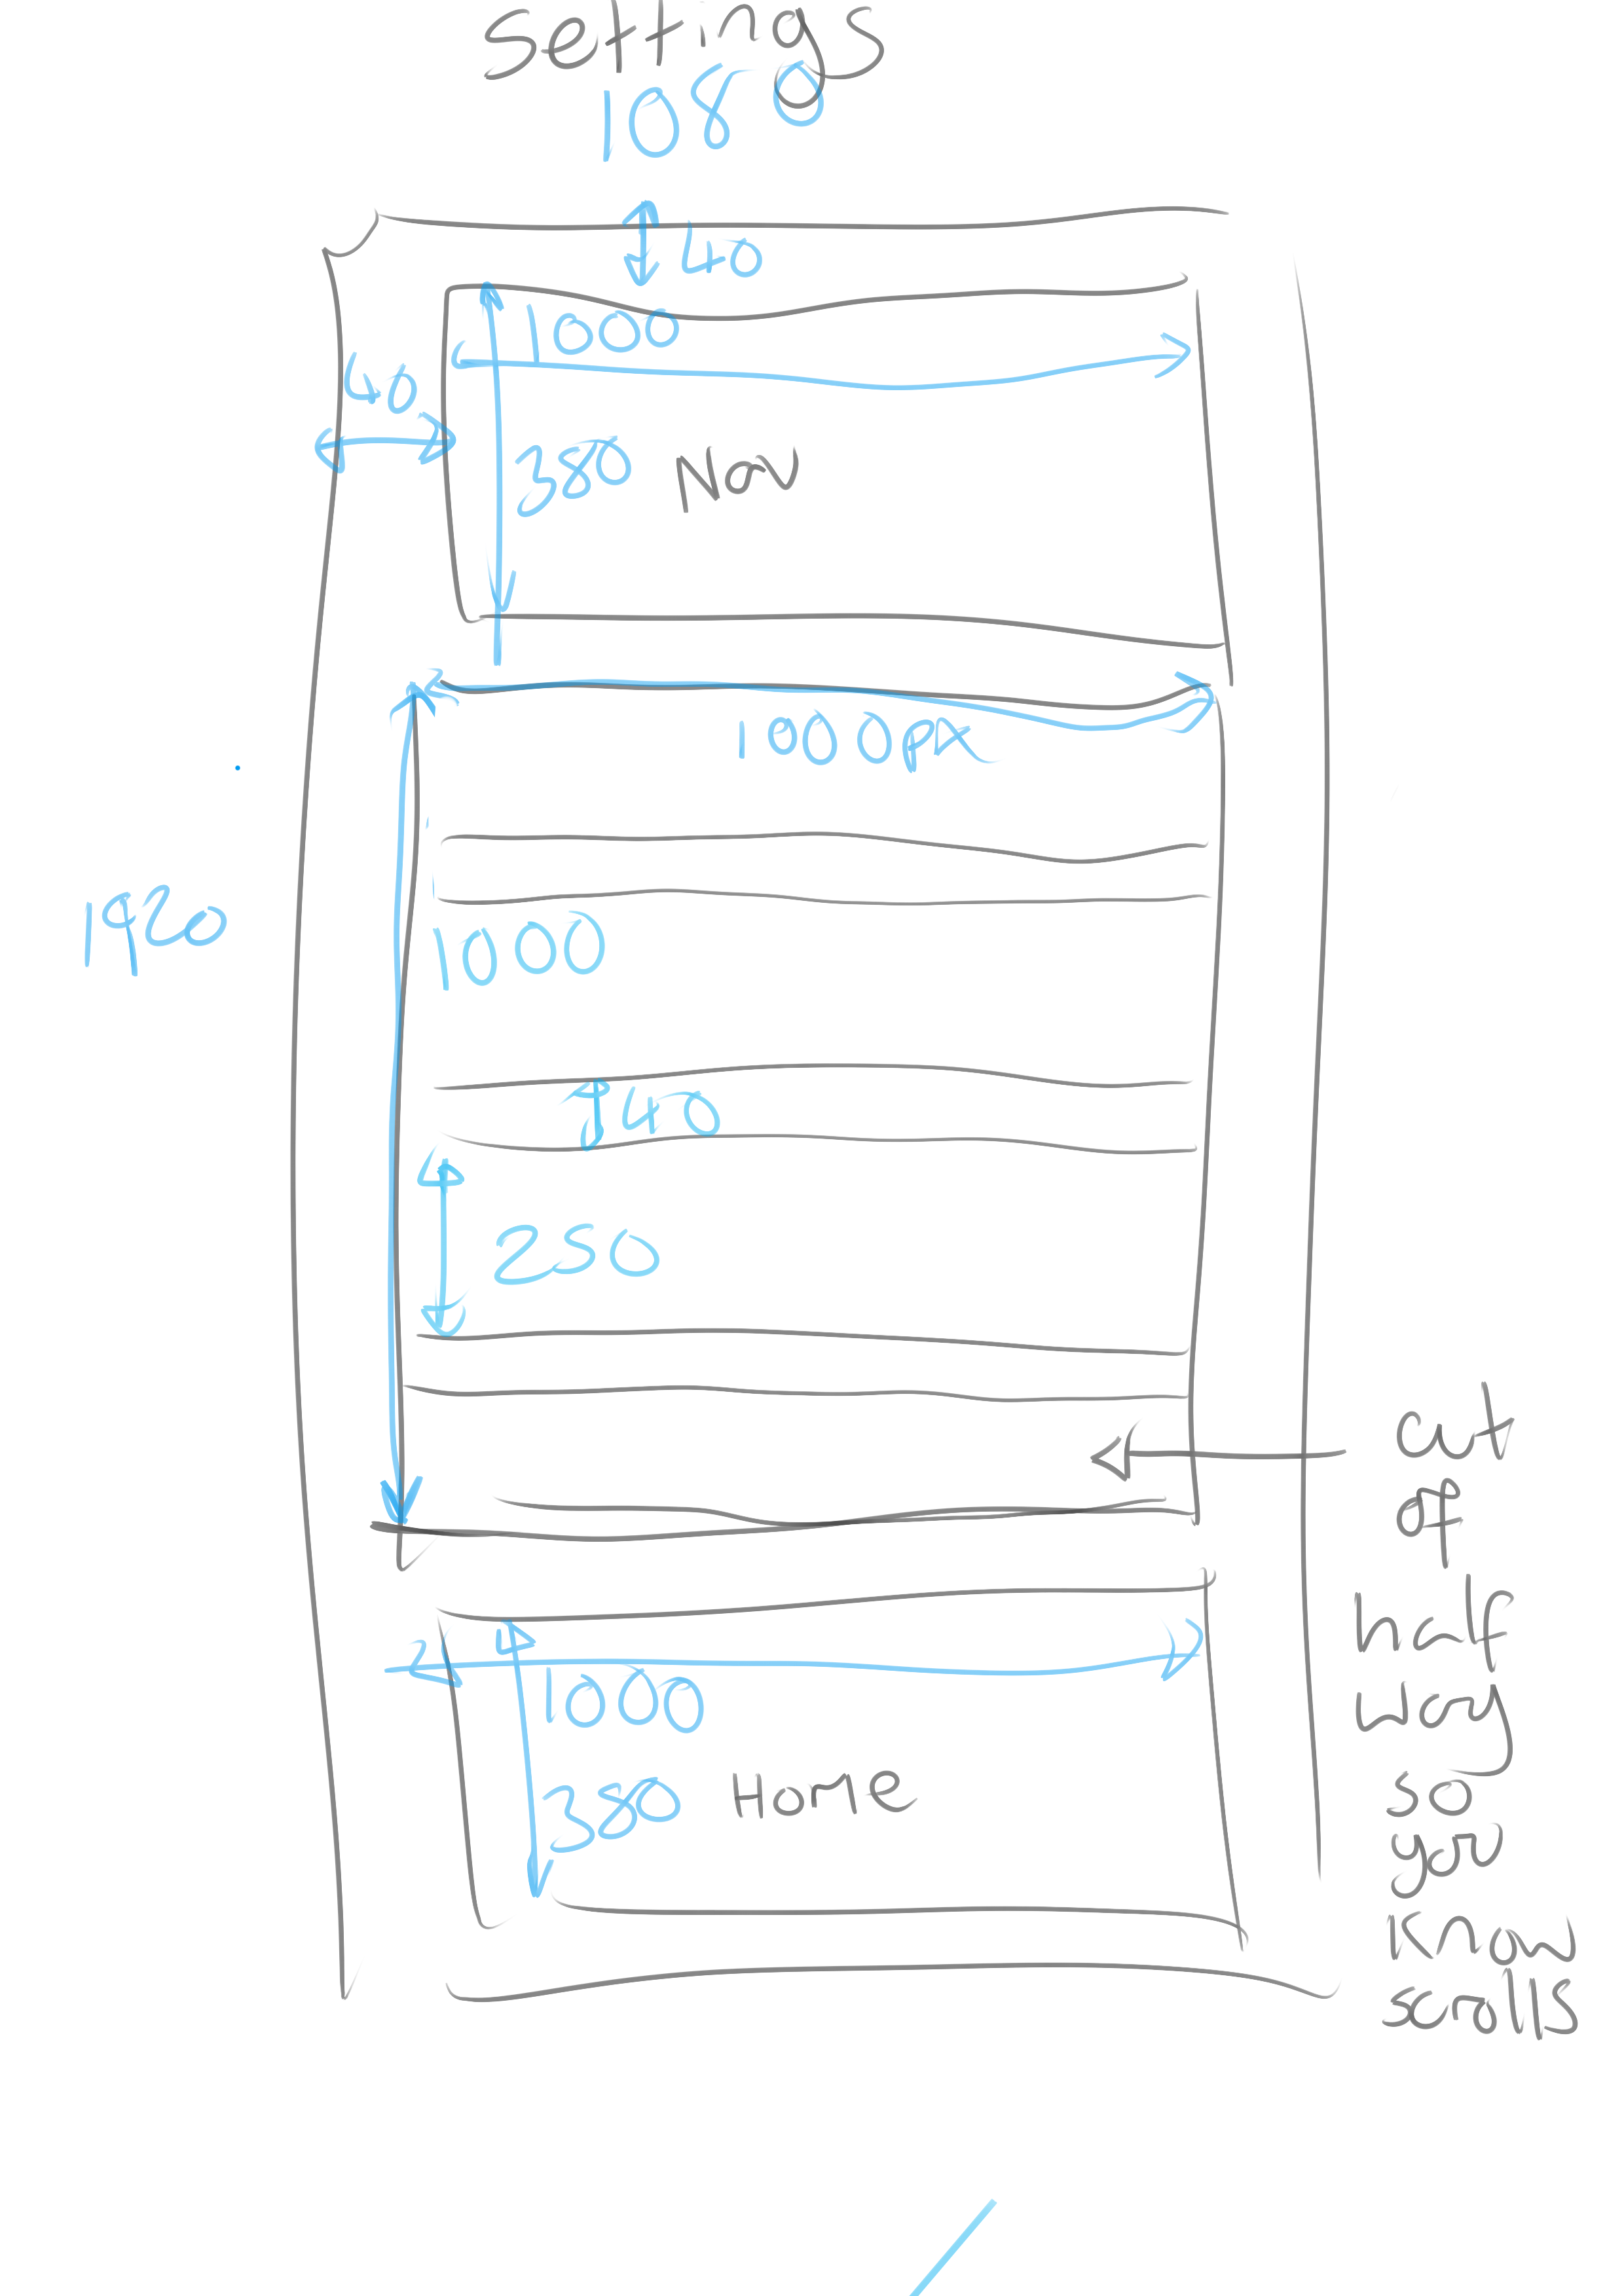 settings
1080
40
1000
40
380 Nav
1000px
1920
1000
140
250
cut
of
half
way
so
you
know
scrolls
1000
380 Home